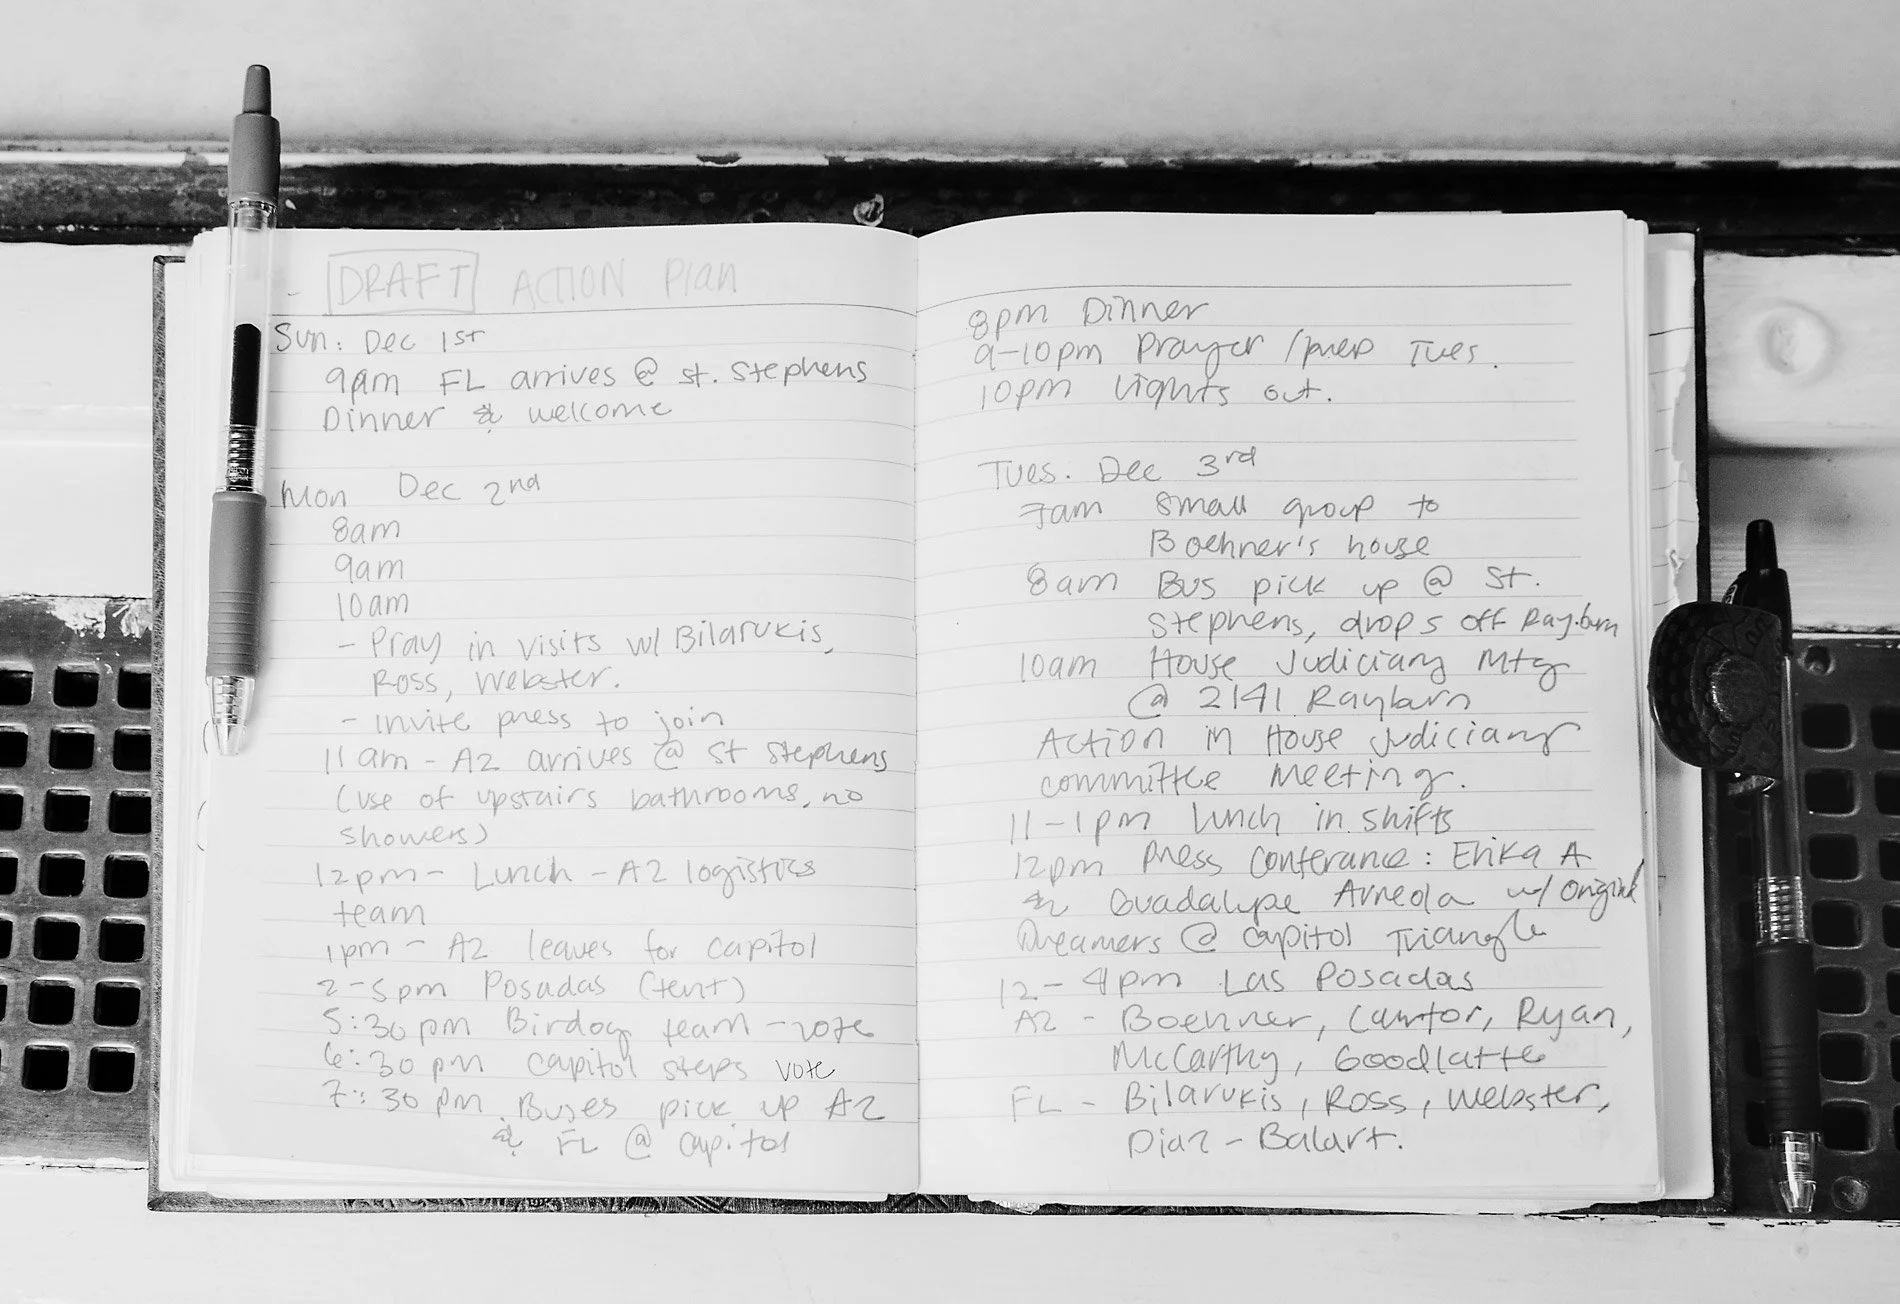 - DRAFT ACTION Plan
Sun: Dec 1st
9am FL arrives @ St. Stephens
Dinner & welcome
Mon Dec 2nd
8am
9am
10am
- Pray in visits w/ Bilarukis,
Ross, Webster.
- Invite press to join
11am - AZ arrives @ St Stephens
(use of upstairs bathrooms, no
showers)
12pm - Lunch - AZ logistics
team
1pm - AZ leaves for capitol
2-5pm Posadas (tent)
5:30pm Birdog team - vote
6:30pm capitol steps vote
7:30pm Buses pick up AZ
& FL @ capitol
8pm Dinner
9-10pm Prayer / prep Tues.
10pm Lights out.
Tues. Dec 3rd
7am Small group to
Boehner's house
8am Bus pick up @ St.
Stephens, drops off Rayburn
10am House Judiciary Mtg
@ 2141 Rayburn
Action in House Judiciary
committee meeting.
11-1pm lunch in shifts
12pm Press Conferance: Erika A
& Guadalupe Arreola w/ original
Dreamers @ capitol Triangle
12-4pm Las Posadas
AZ - Boehner, Cantor, Ryan,
McCarthy, Goodlatte
FL - Bilarukis, Ross, Webster,
Diaz-Balart.